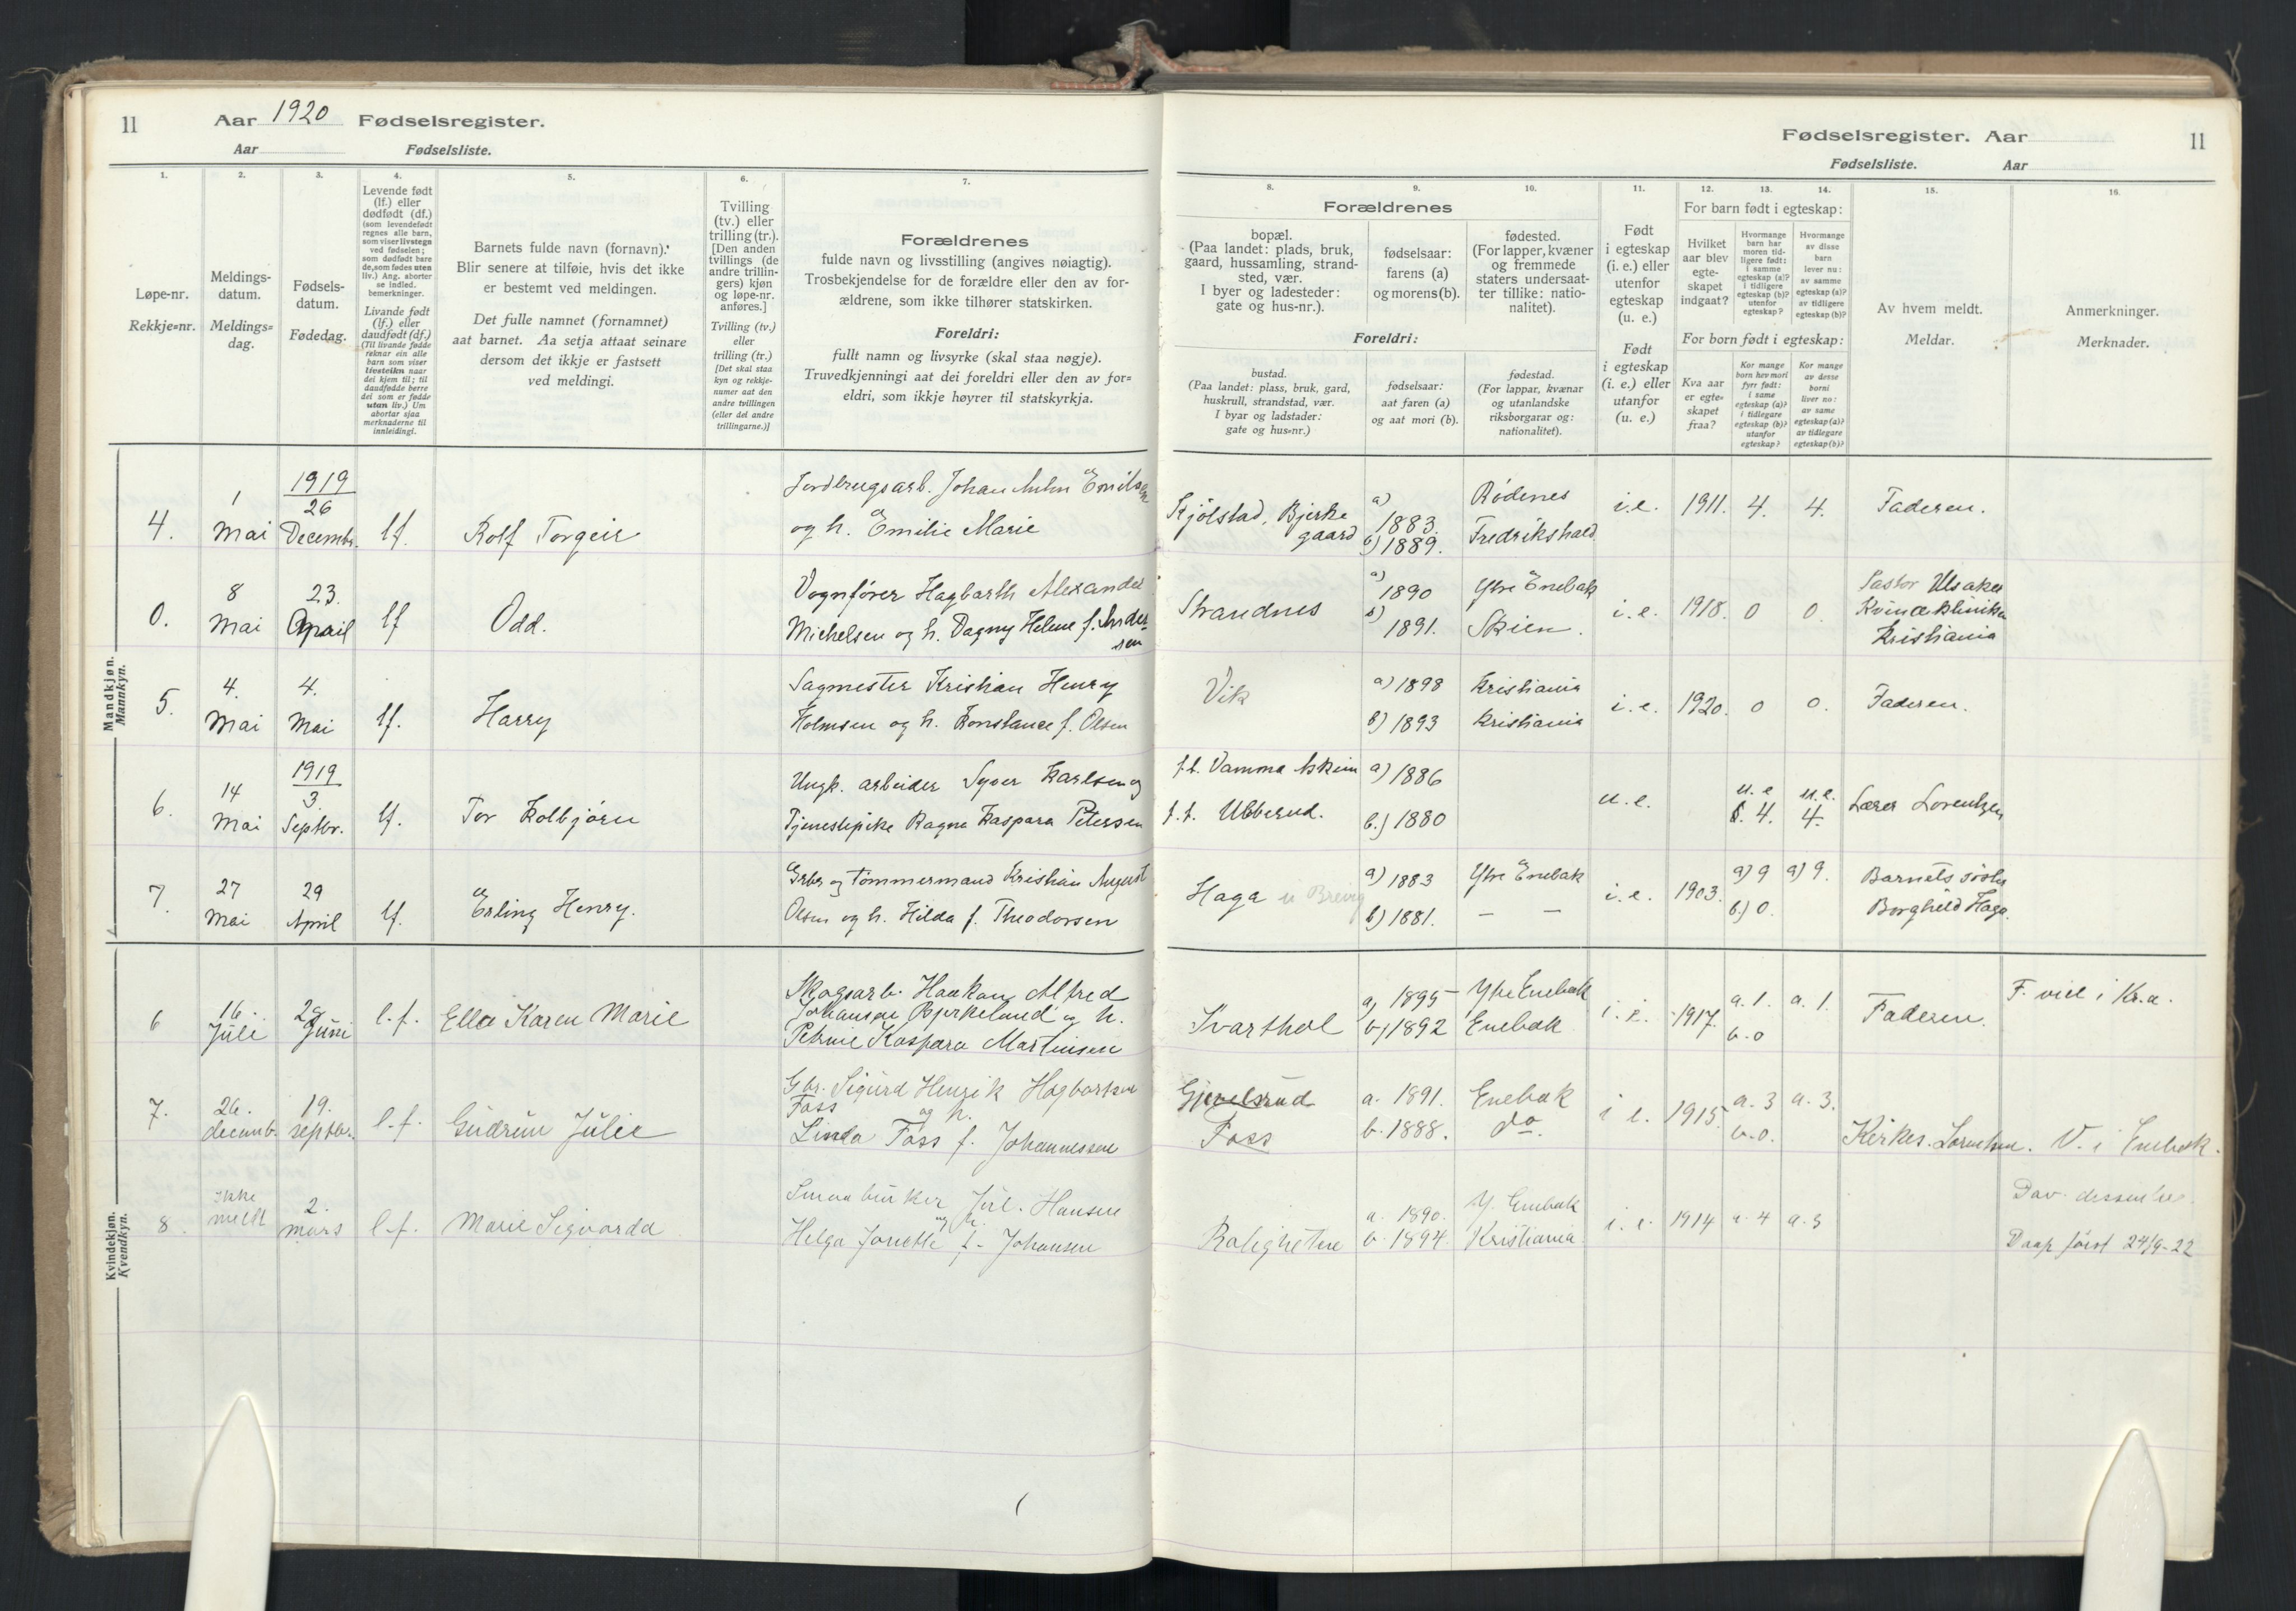 11
Aar 1920 Fødselsregister.
Aar Fødselsliste.
1.
2.
3.
4.
5.
6.
7.
Løpe-nr.
Rekkje=nr.
Meldings-
datum.
Meldings=
dag.
Fødsels-
datum.
Fødedag.
Levende født
(lf.) eller
dødfødt (df.)
(som levendefødt
regnes alle barn,
som viser livstegn
ved fødselen;
som dødfødt bare
de, som fødes uten
liv.) Ang. aborter
se indled.
bemerkninger.
Livande født
(lf.) eller
daudfødt (df.)
(Til livande fødde
reknar ein alle
barn som viser
livsteikn naar
dei kjem til; til
daudfødde berre
dei som er fødde
utan liv.) Um
abortar sjaa
merknaderne til
innleidingi.
Barnets fulde navn (fornavn).
Blir senere at tilføie, hvis det ikke
er bestemt ved meldingen.
Det fulle namnet (fornamnet)
aat barnet. Aa setja attaat seinare
dersom det ikkje er fastsett
ved meldingi.
Tvilling
(tv.) eller
trilling (tr.).
[Den anden
tvillings (de
andre trillin-
gers) kjøn
og løpe-nr.
anføres.]
Tvilling (tv.)
eller
trilling (tr.)
[Det skal staa
kyn og rekkje-
numer aat den
andre tvillingen
(eller dei andre
trillingarne.)]
Forældrenes
fulde navn og livsstilling (angives nøiagtig).
Trosbekjendelse for de forældre eller den av for-
ældrene, som ikke tilhører statskirken.
Foreldri:
fullt namn og livsyrke (skal staa nøgje).
Truvedkjenningi aat dei foreldri eller den av for=
eldri, som ikkje høyrer til statskyrkja.
Mandkjøn.
Mannkyn.
4.
1
Mai
1919
26
Decembr.
lf.
Rolf Torgeir
Jordbrugsarb. Johan Anton Emilsen
og h. Emilie Marie
0.
8
Mai
23.
April
lf
Odd.
Vognfører Hagbarth Alexander
Michelsen og h. Dagny Helene f. Ander-
sen
5.
4.
Mai
4.
Mai
lf.
Harry
Sagmester Kristian Henry
Holmsen og h. Konstance f. Olsen
6.
14
Mai
1919
3.
Septbr.
lf.
Tor Kolbjørn
Ungk. arbeider Syver Karlsen og
Tjenestepike Ragna Kaspara Petersen
7.
27
Mai
29
April
lf.
Erling Henry.
Grbr og Tømmermand Kristian August
Olsen og h. Hilda f. Theodorsen
Kvindekjøn.
Kvendkyn.
6
16.
Juli
Juni
l.f.
Ella Karen Marie
Skogsarb. Haakon Alfred
Johansen Bjerkelund og h.
Petrine Kaspara Martinsen
7.
26.
decemb.
19.
septbr.
l.f.
Gudrun Julie
Gbr. Sigurd Henrik Hagbartsen
Foss
og h.
Linda Foss f. Johannessen
8.
ikke
meldt
2.
mars
l.f.
Marie Sigvarda
Smaabruker Jul. Hansen
og h.
Helga Jonette f. Johansen
Fødselsregister. Aar
Fødselsliste. Aar
11
8.
9.
10.
11.
12.
13.
14.
15.
16.
Forældrenes
bopæl.
(Paa landet: plads, bruk,
gaard, hussamling, strand-
sted, vær.
I byer og ladesteder:
gate og hus-nr.).
fødselsaar:
farens (a)
og morens (b).
fødested.
(For lapper, kvæner
og fremmede
staters undersaat-
ter tillike: natio-
nalitet).
Foreldri:
bustad.
(Paa landet: plass, bruk, gard,
huskrull, strandstad, vær.
I byar og ladstader:
gate og hus=nr.)
fødselsaar:
aat faren (a)
og aat mori (b).
fødestad.
(For lappar, kvænar
og utanlandske
riksborgarar og:
nationalitet).
Født
i egteskap
(i. e.) eller
utenfor
egteskap
(u. e.)
Født
i egteskap
(i. e.) eller
utanfor
(u. e.)
For barn født i egteskap:
Hvilket
aar blev
egte-
skapet
indgaat?
Hvormange
barn har
moren tid-
ligere født:
i samme
egteskap (a)?
i tidligere
egteskap (b)?
utenfor
egteskap?
Hvormange
av disse
barn
lever nu:
av samme
egteskap (a)?
av tidligere
egteskap (b)?
For born født i egteskap:
Kva aar
er egte=
skapet
fraa?
Kor mange
born hev mori
fyrr født:
i same
egteskap (a)?
i tidlegare
egteskap (b)?
utanfor
egteskap?
Kor mange
av desse
borni
liver no:
av same
egteskap (a)?
av tidlegare
egteskap (b)?
Av hvem meldt.
Meldar.
Anmerkninger.
Merknader.
Kjølstad, Bjerke
gaard
a)
1883.
b) 1889.
Rødenes
Fredrikshald
i.e.
1911.
4.
4.
Faderen.
Strandnes
a)
1890
b)
1891.
Ytre Enebak
Skien.
i.e.
1918.
0
0.
Pastor Ulsaker
Kvindeklinikken
Kristiania
Vik
a) 1898
b) 1893
Kristiania
Kristiania
i.e.
1920.
0
0.
Faderen.
f.t. Vamma Askim
f.t. Ubberud.
a) 1886
b.) 1880
u.e.
u.e
4.
u.e.
4.
Lærer Lorentzen
Haga
a) 1883
b) 1881.
Ytre Enebak
— —
i.e.
1903.
a) 9
b.) 0.
a) 9.
Barnets søster
Borghild Haga.
Kvarthol
a) 1895
b) 1892
Ytre Enebak
Enebak
i.e.
1917.
a. 1.
b. 0
a. 1.
Faderen.
F. viel i Kr.a.
Gjevelsrud
Foss
a. 1891.
b. 1888.
Enebak
do.
i e.
1915.
a. 3
b. 0.
a. 3.
Kirkes. Lorentzen.
V. i Enebak.
Roligheten
a. 1890.
b. 1894.
Y. Enebak
Kristiania
i. e.
1914
a. 4
a. 3
Døpt først 24/9-22